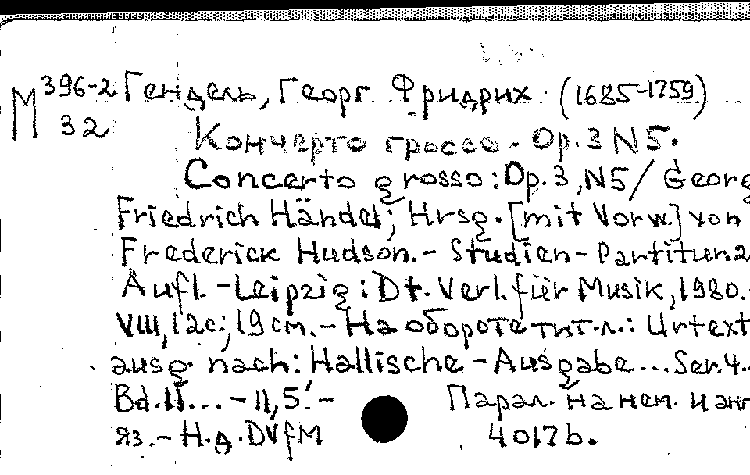 М 396-2 Гендель, Георг Фридрих (1685-1759)
32
Кончерто гроссо - Op.3 N5.
Concerto grosso: Op.3, N5/ Georg
Friedrich Händel; Hrsg. [mit Vorw.] von
Frederick Hudson. - Studien-Partitur. 2
Aufl. - Leipzig: Dt. Verl. für Musik, 1980. -
VIII, 12 с.; 19 cm. - На обороте тит. л.: Urtext
ausg. nach: Hallische-Ausgabe... Ser. 4.
Bd. 11... - 11,5'. -
Парал. на нем. и анг
яз. - Н.д. DVfM
4017b.